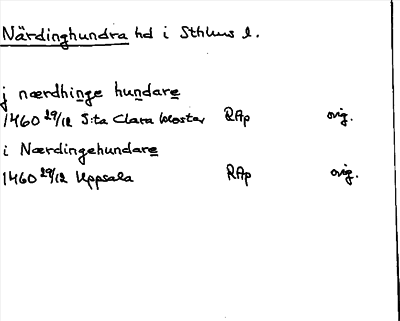 Närdinghundra hd i Sthlms l.
j nærdhinge hundare
1460 29/12 S:ta Clara kloster RAp orig.
i Nærdingehundare
1460 29/12 Uppsala RAp orig.